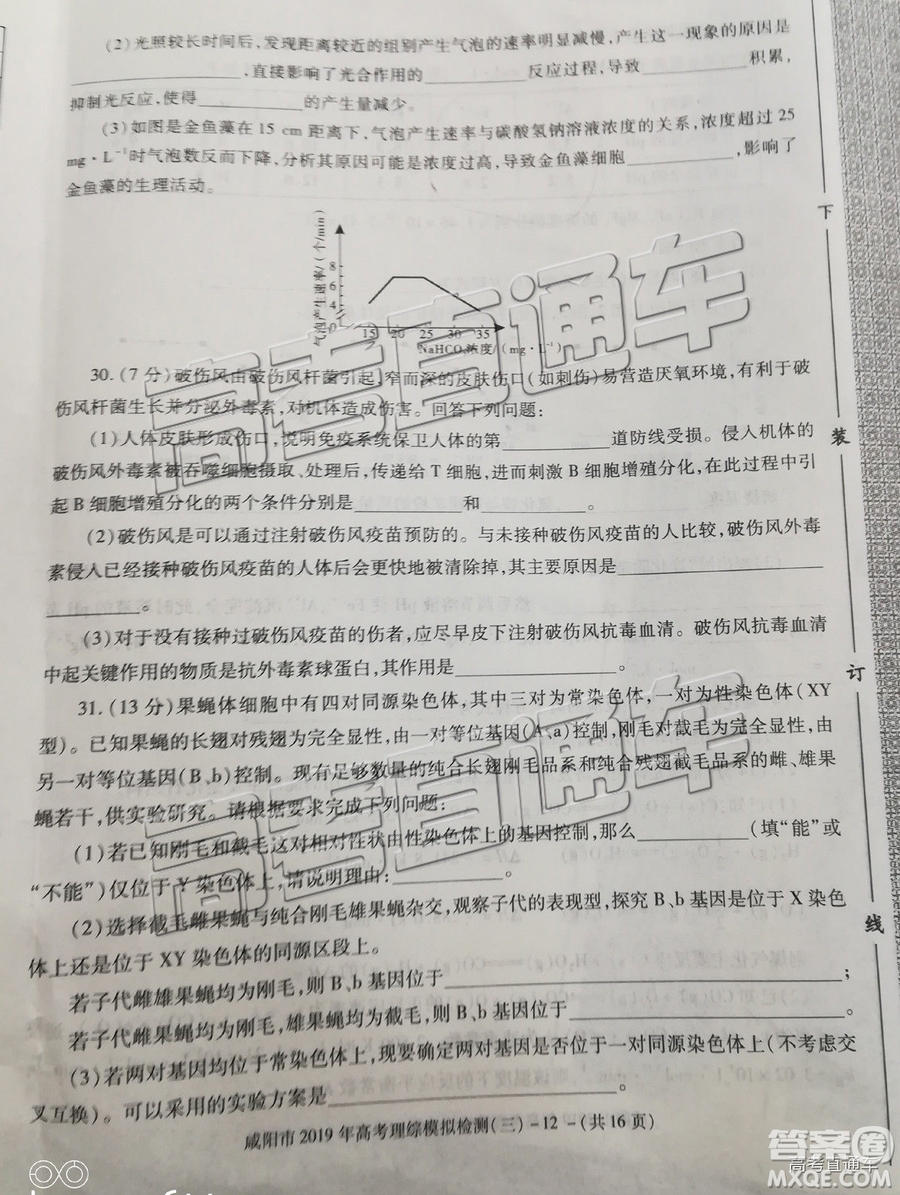 (2)光照较长时间后,发现距离较近的组别产生气泡的速率明显减慢,产生这一现象的原因是
____________,直接影响了光合作用的________反应过程,导致________积累,
抑制光反应,使得________的产生量减少。
(3)如图是金鱼藻在15 cm距离下,气泡产生速率与碳酸氢钠溶液浓度的关系,浓度超过25
mg·L⁻¹时气泡数反而下降,分析其原因可能是浓度过高,导致金鱼藻细胞________,影响了
金鱼藻的生理活动。
气泡产生速率/(个/min)
8
6
4
0
15 20 25 30 35
NaHCO₃浓度/(mg·L⁻¹)
30.(7分)破伤风由破伤风杆菌引起,窄而深的皮肤伤口(如刺伤)易营造厌氧环境,有利于破
伤风杆菌生长并分泌外毒素,对机体造成伤害。回答下列问题:
(1)人体皮肤形成伤口,说明免疫系统保卫人体的第________道防线受损。侵入机体的
破伤风外毒素被吞噬细胞摄取、处理后,传递给T细胞,进而刺激B细胞增殖分化,在此过程中引
起B细胞增殖分化的两个条件分别是________和________。
(2)破伤风是可以通过注射破伤风疫苗预防的。与未接种破伤风疫苗的人比较,破伤风外毒
素侵入已经接种破伤风疫苗的人体后会更快地被清除掉,其主要原因是________________
________。
(3)对于没有接种过破伤风疫苗的伤者,应尽早皮下注射破伤风抗毒血清。破伤风抗毒血清
中起关键作用的物质是抗外毒素球蛋白,其作用是____________。
31.(13分)果蝇体细胞中有四对同源染色体,其中三对为常染色体,一对为性染色体(XY
型)。已知果蝇的长翅对残翅为完全显性,由一对等位基因(A、a)控制,刚毛对截毛为完全显性,由
另一对等位基因(B、b)控制。现有足够数量的纯合长翅刚毛品系和纯合残翅截毛品系的雌、雄果
蝇若干,供实验研究。请根据要求完成下列问题:
(1)若已知刚毛和截毛这对相对性状由性染色体上的基因控制,那么________(填“能”或
“不能”)仅位于Y染色体上,请说明理由:________。
(2)选择截毛雌果蝇与纯合刚毛雄果蝇杂交,观察子代的表现型,探究B、b基因是位于X染色
体上还是位于XY染色体的同源区段上。
若子代雌雄果蝇均为刚毛,则B、b基因位于____________________________;
若子代雌果蝇均为刚毛,雄果蝇均为截毛,则B、b基因位于____________________。
(3)若两对基因均位于常染色体上,现要确定两对基因是否位于一对同源染色体上(不考虑交
叉互换)。可以采用的实验方案是____________________。
咸阳市2019年高考理综模拟检测(三)-12-(共16页)
下
装
订
线
高考直通车
高考直通车
答案圈
高考直通车
MXQE.COM